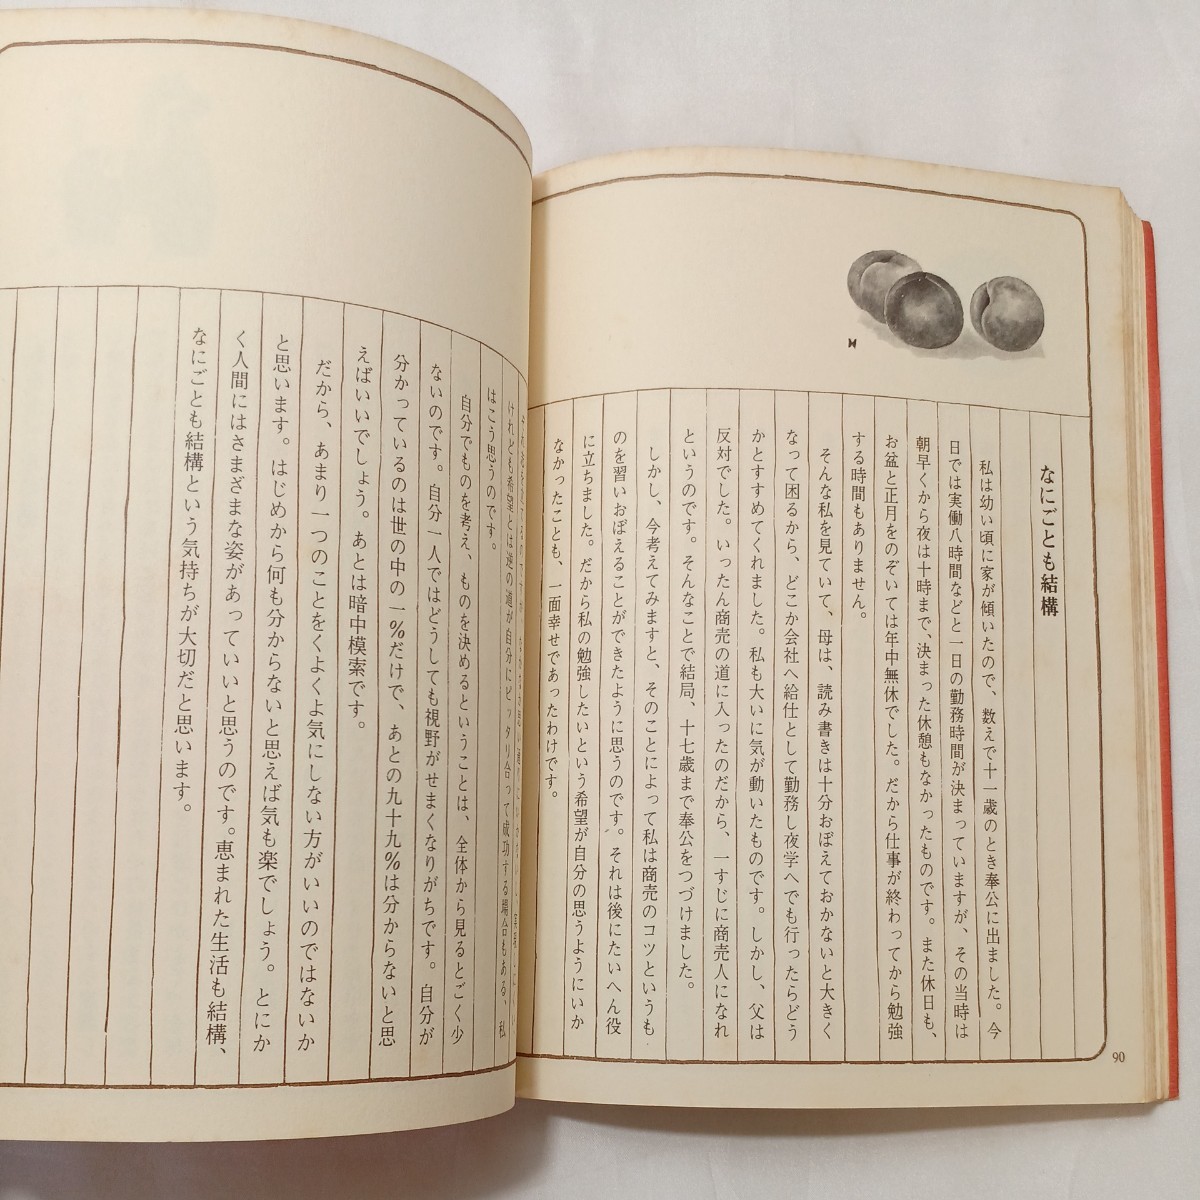 なにごとも結構
私は幼い頃に家が傾いたので、数えで十一歳のとき奉公に出ました。今
日では実働八時間などと一日の勤務時間が決まっていますが、その当時は
朝早くから夜は十時まで、決まった休憩もなかったものです。また休日も、
お盆と正月をのぞいては年中無休でした。だから仕事が終わってから勉強
する時間もありません。
そんな私を見ていて、母は、読み書きは十分おぼえておかないと大きく
なって困るから、どこか会社へ給仕として勤務し夜学へでも行ったらどう
かとすすめてくれました。私も大いに気が動いたものです。しかし、父は
反対でした。いったん商売の道に入ったのだから、一すじに商売人になれ
というのです。そんなことで結局、十七歳まで奉公をつづけました。
しかし、今考えてみますと、そのことによって私は商売のコツというも
のを習いおぼえることができたように思うのです。それは後にたいへん役
に立ちました。だから私の勉強したいという希望が自分の思うようにいか
なかったことも、一面幸せであったわけです。
90
けれども希望とは逆の道が自分にピッタリ合って成功する場合もある、私
はこう思うのです。
自分でものを考え、ものを決めるということは、全体から見るとごく少
ないのです。自分一人ではどうしても視野がせまくなりがちです。自分が
分かっているのは世の中の一%だけで、あとの九十九%は分からないと思
えばいいでしょう。あとは暗中模索です。
だから、あまり一つのことをくよくよ気にしない方がいいのではないか
と思います。はじめから何も分からないと思えば気も楽でしょう。とにか
く人間にはさまざまな姿があっていいと思うのです。恵まれた生活も結構、
なにごとも結構という気持ちが大切だと思います。